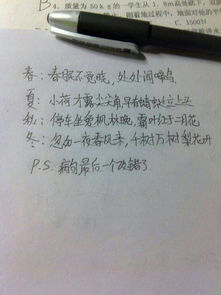 4. 质量为50kg的一学生从1.8m高处跳下,双
春:春眠不觉晓,处处闻啼鸟
夏:小荷才露尖尖角,早有蜻蜓立上头
秋:停车坐爱枫林晚,霜叶红于二月花
冬:忽如一夜春风来,千树万树梨花开
P.S. 最后一个改错了